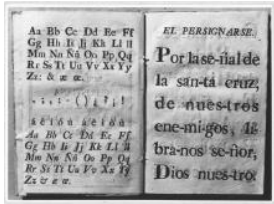 Aa Bb Cc Dd Ee Ff
Gg Hh Ii Jj Kk Ll ll
Mm Nn Ññ Oo Pp Qq
Rr Ss Tt Uu Vv Xx Yy
Zz: & æ œ.
á é í ó ú
Aa Bb Cc Dd Ee Ff
Gg Hh Ii Jj Kk Ll ll
Mm Nn Ññ Oo Pp Qq
Rr Ss Tt Uu Vv Xx Yy
Zz & æ œ.
EL PERSIGNARSE.
Por la se-ñal de
la san-tá cruz,
de nues-tros
ene-mi-gos,
bra-nos se-ñor,
Dios nues-tro.